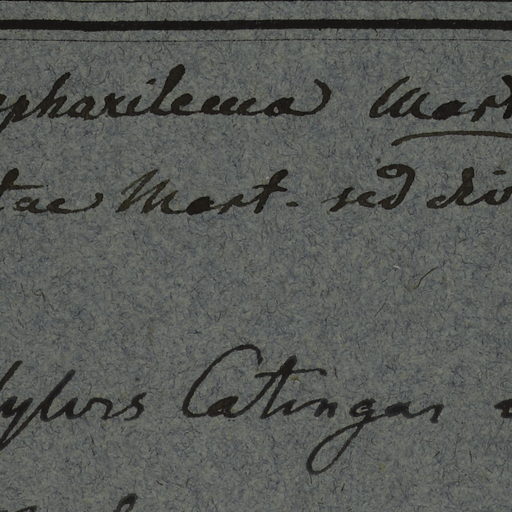 ephaxilema Mart
tae Mart. sed div
sylvis Catingas